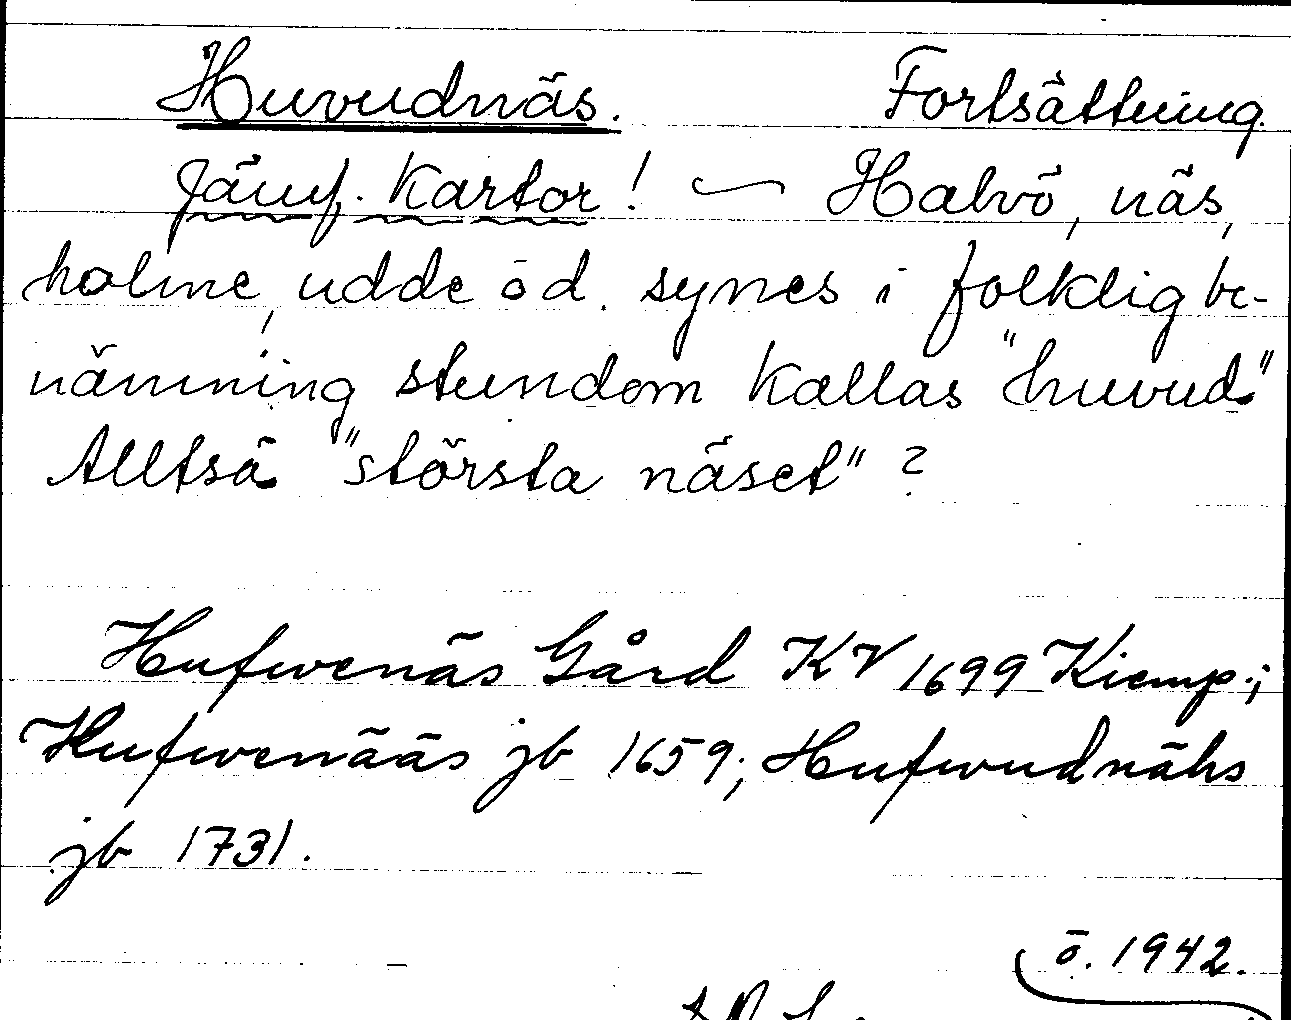 Huvudnäs. Fortsättning.
Jämf. Kartor! — Halvö, näs,
holme, udde öd. synes i folklig be-
nämning stundom kallas "huvud"
Alltså "största näset"?
Hufwenäs Gård KV 1699 Kiemp.;
Hufwenääs jb 1659; Hufwudnähs
jb 1731.
ö. 1942.